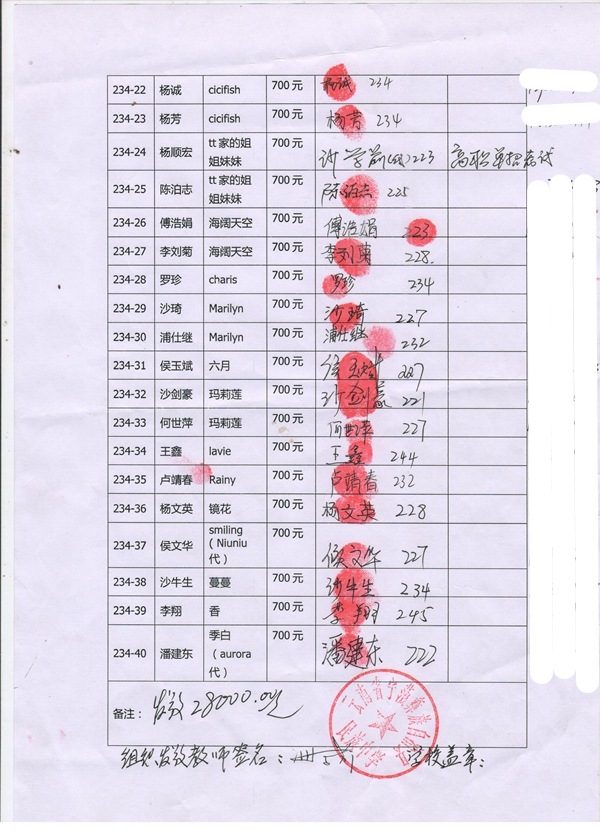 234-22 杨诚 cicifish 700元 杨诚 234
234-23 杨芳 cicifish 700元 杨芳 234
234-24 杨顺宏 tt 家的姐姐妹妹 700元 223 高职单招考试
234-25 陈泊志 tt 家的姐姐妹妹 700元 陈泊志 225
234-26 傅浩娟 海阔天空 700元 傅浩娟 223
234-27 李刘菊 海阔天空 700元 李刘菊 228.
234-28 罗珍 charis 700元 罗珍 234
234-29 沙琦 Marilyn 700元 沙琦 227
234-30 浦仕继 Marilyn 700元 浦仕继 232
234-31 侯玉斌 六月 700元 侯玉斌 227
234-32 沙剑豪 玛莉莲 700元 沙剑豪 221
234-33 何世萍 玛莉莲 700元 何世萍 227
234-34 王鑫 lavie 700元 王鑫 244
234-35 卢靖春 Rainy 700元 卢靖春 232
234-36 杨文英 镜花 700元 杨文英 228
234-37 侯文华 smiling（Niuniu代） 700元 侯文华 227
234-38 沙牛生 蔓蔓 700元 沙牛生 234
234-39 李翔 香 700元 李翔 245
234-40 潘建东 季白（aurora代） 700元 潘建东 222
备注： 发放28000.00元
云南省宁蒗彝族自治县
民族中学
组织发放教师签名： 学校盖章：